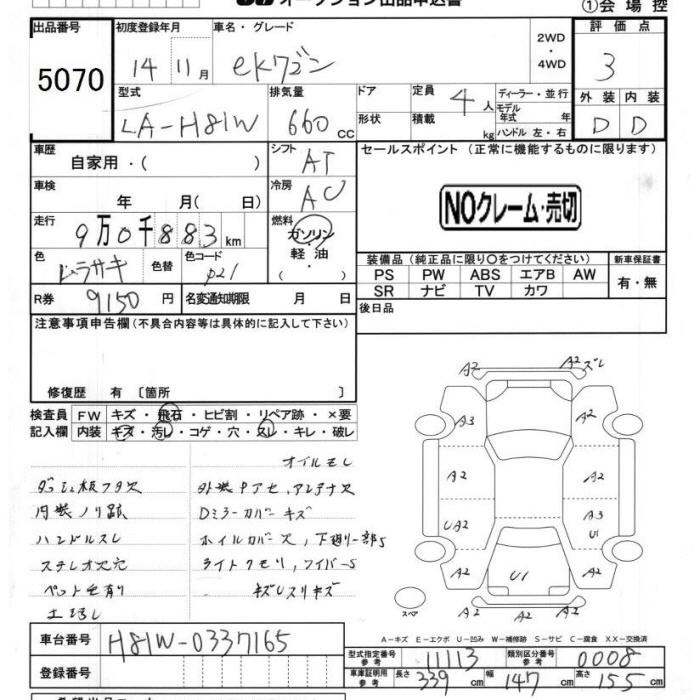 ①会場控
出品番号 5070
初度登録年月 14年 11月
車名・グレード ekワゴン
2WD
・
4WD
評価点 3
型式 LA-H81W
排気量 660cc
ドア
形状
定員 4人
積載 kg
ディーラー・並行
モデル年式 年
ハンドル 左・右
外装 D
内装 D
車歴 自家用・( )
シフト AT
セールスポイント(正常に機能するものに限ります)
NOクレーム・売切
車検 年 月( 日)
冷房 AC
走行 9万0千883km
燃料 ガソリン・軽油・( )
色 ムラサキ
色替
色コード P21
装備品(純正品に限り○をつけてください)
新車保証書
PS PW ABS エアB AW
SR ナビ TV カワ
有・無
R券 9150円
名変通知期限 月 日
後日品
注意事項申告欄(不具合内容等は具体的に記入して下さい)
修復歴 有 [箇所 ]
検査員記入欄
FW キズ・飛石・ヒビ割・リペア跡・×要
内装 キズ・汚レ・コゲ・穴・スレ・キレ・破レ
オイルモレ
内装ノリ跡
Dミラーカバーキズ
ハンドルスレ
ホイルカバー欠、下廻り一部S
ステレオ欠穴
ライトクモリ、ワイパーS
ペット毛有り
キズしスリキズ
A2
A2 ズレ
A3
A2
A2
A2
UA2
A3
U
A2
A2
U1
A2
A2
A2
スペア
A-キズ E-エクボ U-凹み W-補修跡 S-サビ C-腐食 XX-交換済
車台番号 H81W-0337165
登録番号
型式指定番号 参考 11113
類別区分番号 参考 0008
車庫証明用 参考 長さ 339cm 幅 147cm 高さ 155cm